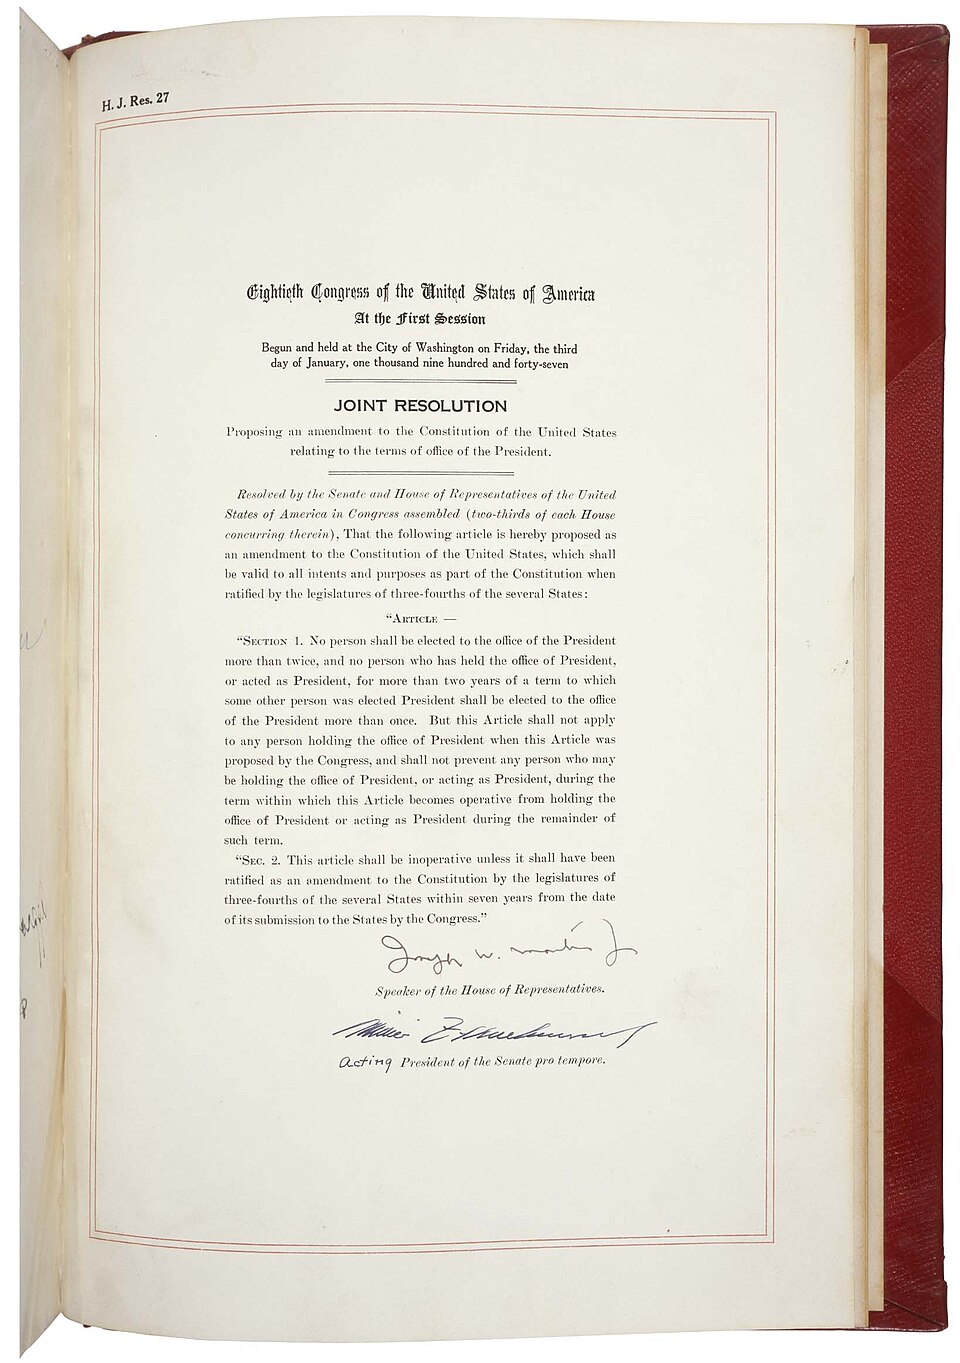 H. J. Res. 27
Eightieth Congress of the United States of America
At the First Session
Begun and held at the City of Washington on Friday, the third
day of January, one thousand nine hundred and forty-seven
JOINT RESOLUTION
Proposing an amendment to the Constitution of the United States
relating to the terms of office of the President.
Resolved by the Senate and House of Representatives of the United
States of America in Congress assembled (two-thirds of each House
concurring therein), That the following article is hereby proposed as
an amendment to the Constitution of the United States, which shall
be valid to all intents and purposes as part of the Constitution when
ratified by the legislatures of three-fourths of the several States:
"ARTICLE —
"SECTION 1. No person shall be elected to the office of the President
more than twice, and no person who has held the office of President,
or acted as President, for more than two years of a term to which
some other person was elected President shall be elected to the office
of the President more than once. But this Article shall not apply
to any person holding the office of President when this Article was
proposed by the Congress, and shall not prevent any person who may
be holding the office of President, or acting as President, during the
term within which this Article becomes operative from holding the
office of President or acting as President during the remainder of
such term.
"SEC. 2. This article shall be inoperative unless it shall have been
ratified as an amendment to the Constitution by the legislatures of
three-fourths of the several States within seven years from the date
of its submission to the States by the Congress."
Joseph W. Martin Jr
Speaker of the House of Representatives.
Acting President of the Senate pro tempore.